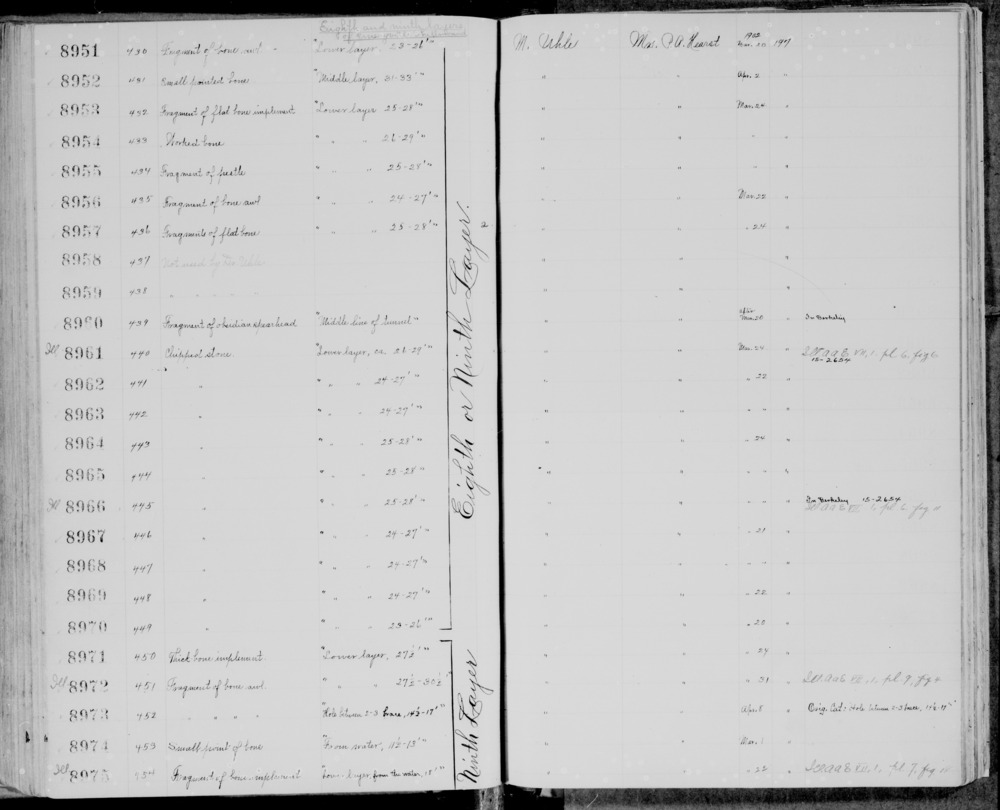 Eighth and ninth layers
8951 430 Fragment of bone awl " "Lower layer 23-26'" M. Uhle Mrs. P. A. Hearst 1902 Mar. 20 197
8952 431 Small pointed bone "Middle layer, 31-33'" " " Apr. 2 "
8953 432 Fragment of flat bone implement "Lower layer 25-28'" " " Mar. 24 "
8954 433 Worked bone " " " 26-29'" " " " "
8955 434 Fragment of pestle " " " 25-28'" " " " "
8956 435 Fragment of bone awl " " " 24-27'" " " Mar. 22 "
8957 436 Fragments of flat bone " " " 25-28'" 2 " " " 24 "
8958 437 Not used by Dr. Uhle " " "
8959 438 " " " " " " "
8960 439 Fragment of obsidian spearhead "Middle line of tunnel" " after Mar. 20 " In Berkeley
Ill 8961 440 Chipped stone "Lower layer, ca. 26-29'" " " Mar. 24 " Ill. a a E VII, 1. pl. 6, fig
15-2654
8962 441 " " " " 24-27'" " " " 22 "
8963 442 " " " " 24-27'" " " " " "
8964 443 " " " " 25-28'" " " " 24 "
8965 444 " " " " 25-28'" " " " " "
Ill 8966 445 " " " " 25-28'" " " " " " In Berkeley 15-2654
Ill a a E VII 1, pl 6, fig 11
8967 446 " " " " 24-27'" " " " 21 "
8968 447 " " " " 24-27'" " " " " "
8969 448 " " " " 24-27'" " " " 22 "
8970 449 " " " " 23-26'" " " " 20 "
Eighth or Ninth Layer.
8971 450 Thick bone implement "Lower layer, 27½'" " " " 24 "
Ill 8972 451 Fragment of bone awl " " " 27½-30½ " " " 31 " Ill. a a E VII, 1, pl. 9, fig
8973 452 " " " " "Hole between 2-3 brace, 14½-17'" " " Apr. 8 " Orig. Cat: Hole between 2-3 brace, 14½-17'"
8974 453 Small point of bone "From water, 11½-13'" " " Mar. 1 "
Ill 8975 454 Fragment of bone implement " layer, from the water, 18'" " " " 22 " Ill a a E VII. 1. pl. 7, fig
Ninth Layer